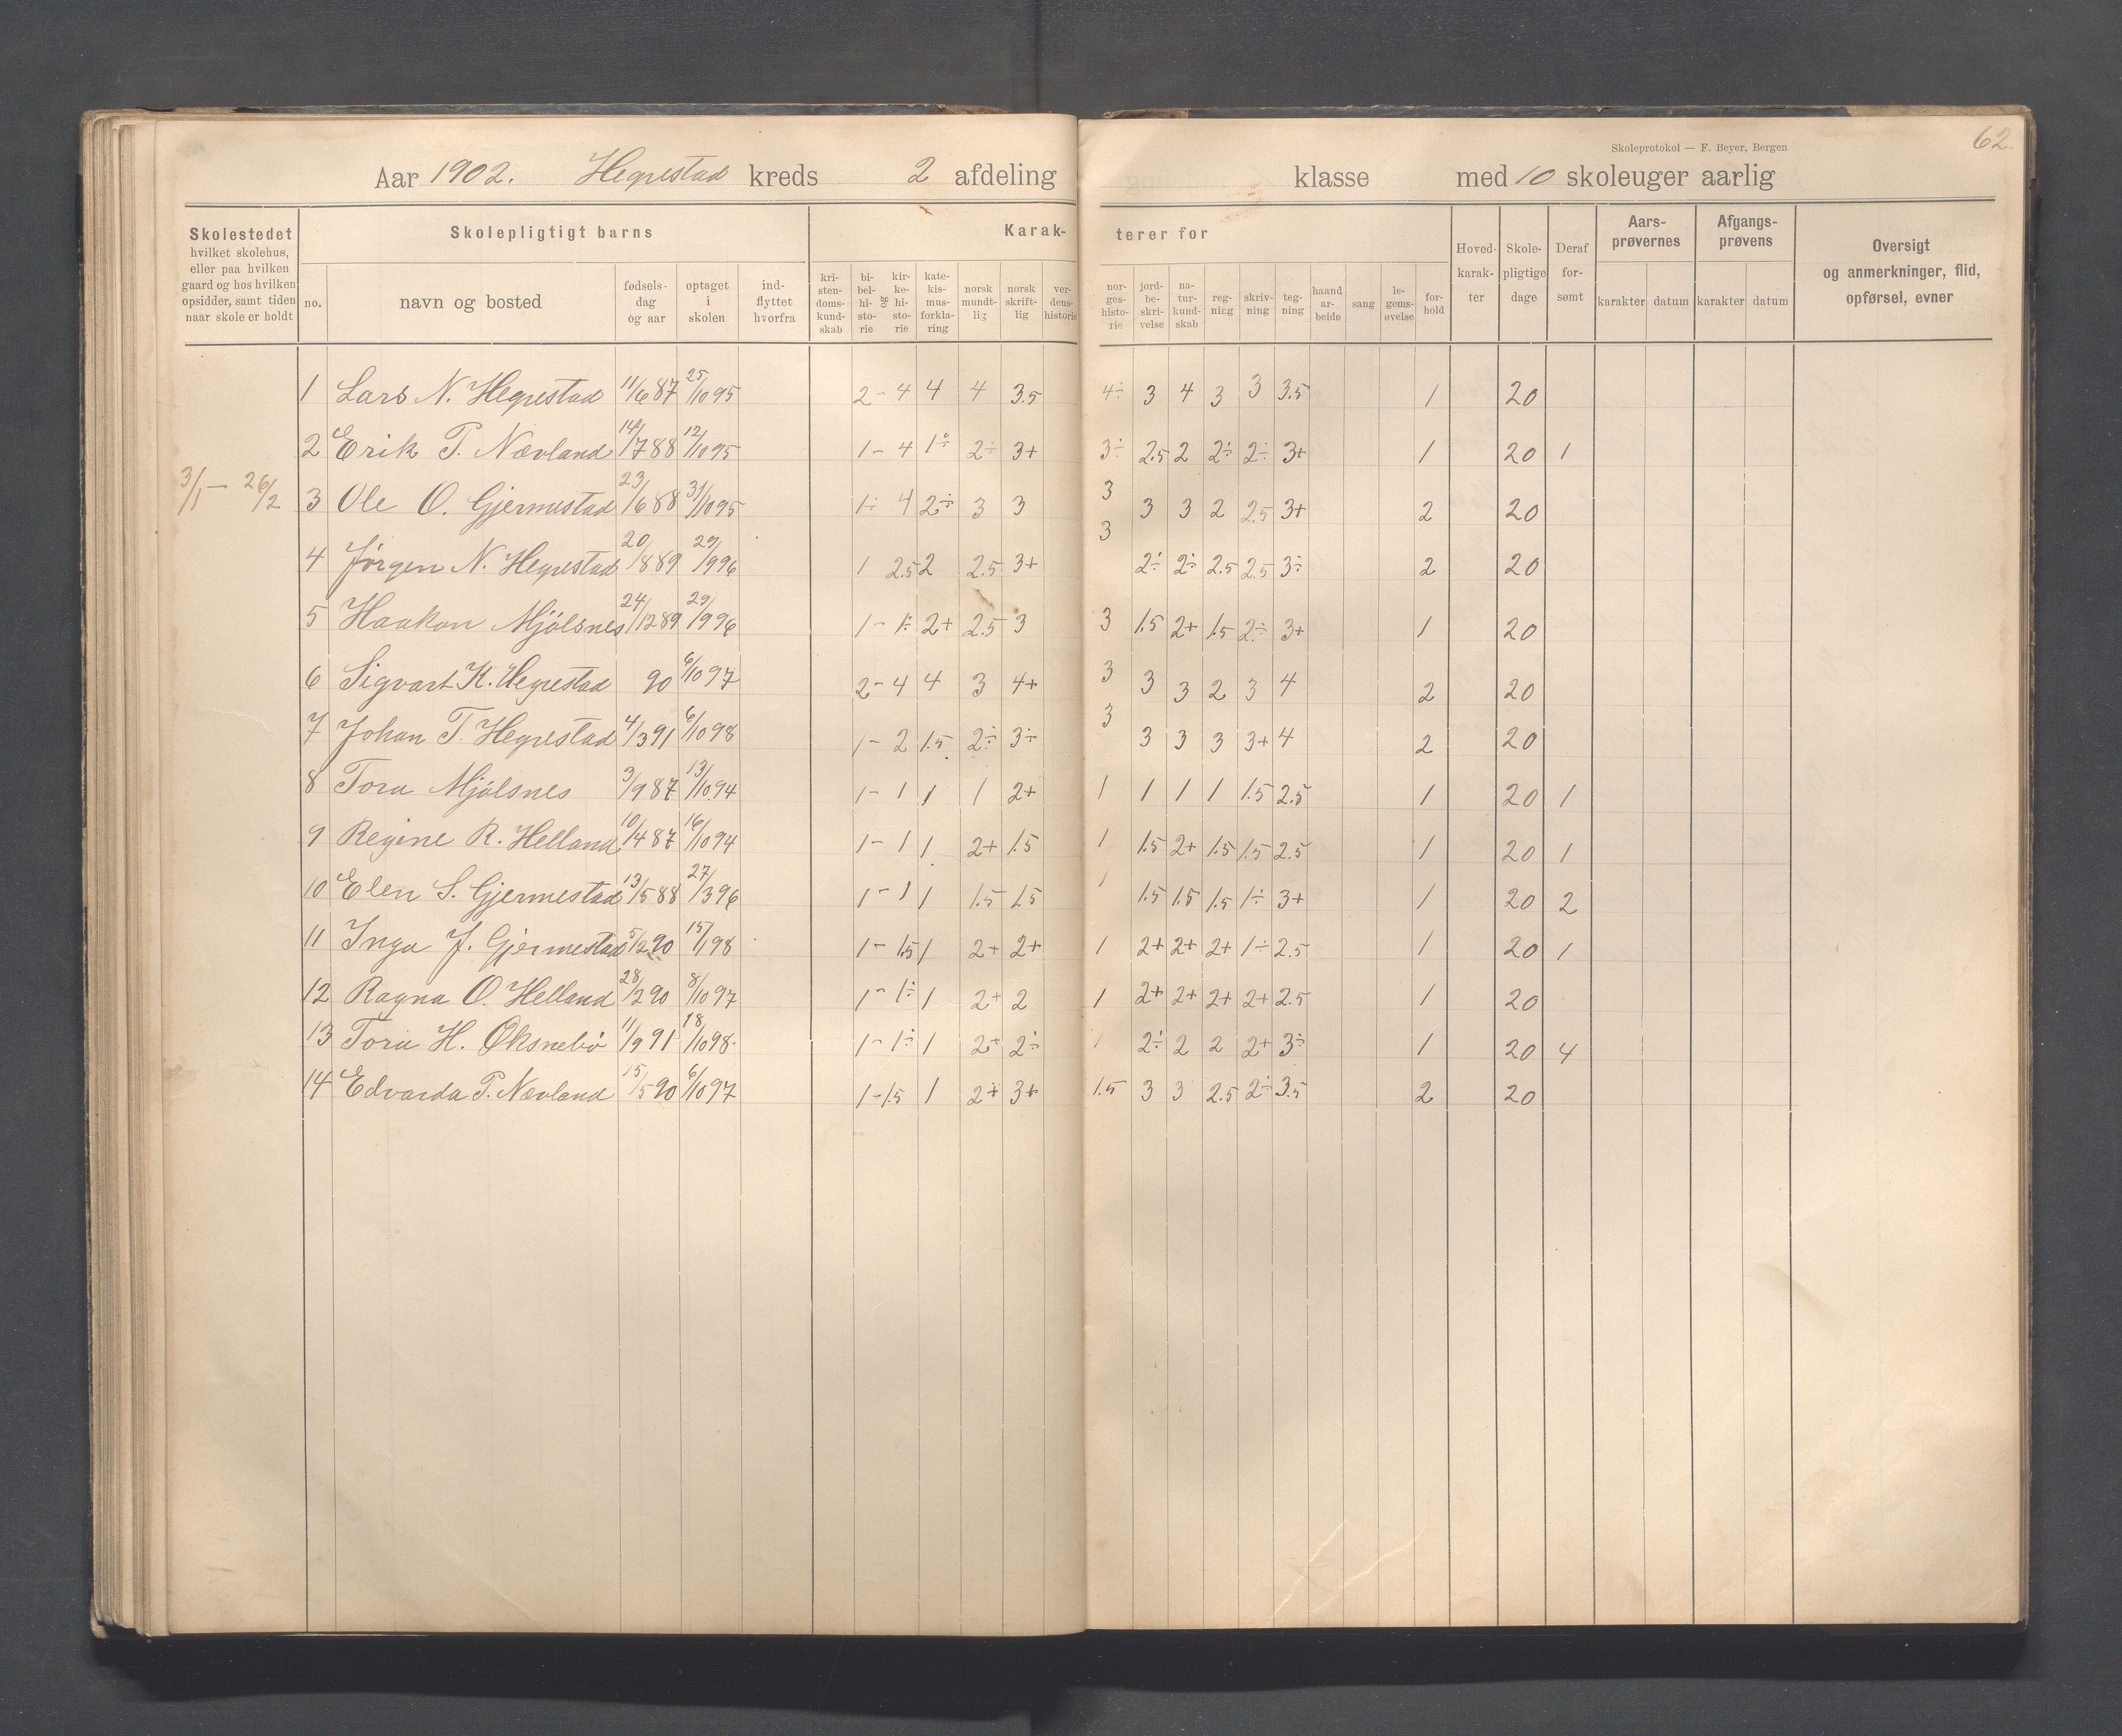 62.
Skoleprotokol — F. Beyer, Bergen
Aar 1902. Hegrestad kreds 2 afdeling klasse med 10 skoleuger aarlig
Skolestedet hvilket skolehus, eller paa hvilken gaard og hos hvilken opsidder, samt tiden naar skole er holdt
Skolepligtigt barns
Karakterer for
no. navn og bosted fødselsdag og aar optaget i skolen indflyttet hvorfra
kristendomskundskab bibelhistorie og kirkehistorie katekismusforklaring norsk mundtlig norsk skriftlig verdenshistorie
norgeshistorie jordbeskrivelse naturkundskab regning skrivning tegning haandarbeide sang legemsøvelse forhold
Hovedkarakter Skolepligtige dage Deraf forsømt Aarsprøvernes karakter datum Afgangsprøvens karakter datum
Oversigt og anmerkninger, flid, opførsel, evner
3/1 — 26/2
1 Lars N. Hegrestad 11/6 87 25/10 95 2 - 4 4 4 3.5 4÷ 3 4 3 3 3.5 1 20
2 Erik P. Nævland 14/7 88 12/10 95 1 - 4 1÷ 2÷ 3+ 3÷ 2.5 2 2÷ 2÷ 3+ 1 20 1
3 Ole O. Gjermestad 23/6 88 31/10 95 1÷ 4 2÷ 3 3 3 3 3 2 2.5 3+ 2 20
4 Jørgen N. Hegrestad 20/8 89 29/9 96 1 2.5 2 2.5 3+ 3 2÷ 2÷ 2.5 2.5 3÷ 2 20
5 Haakon Mjølsnes 24/12 89 29/9 96 1 - 1÷ 2+ 2.5 3 3 1.5 2+ 1.5 2÷ 3+ 1 20
6 Sigvart K. Hegrestad 90 6/10 97 2 - 4 4 3 4+ 3 3 3 2 3 4 2 20
7 Johan T. Hegrestad 4/3 91 6/10 98 1 - 2 1.5 2÷ 3÷ 3 3 3 3 3+ 4 2 20
8 Tora Mjølsnes 3/9 87 13/10 94 1 - 1 1 1 2+ 1 1 1 1 1.5 2.5 1 20 1
9 Regine R. Helland 10/4 87 16/10 94 1 - 1 1 2+ 1.5 1 1.5 2+ 1.5 1.5 2.5 1 20 1
10 Elen S. Gjermestad 13/5 88 27/3 96 1 - 1 1 1.5 1.5 1 1.5 1.5 1.5 1÷ 3+ 1 20 2
11 Inga J. Gjermestad 5/2 90 15/1 98 1 - 1.5 1 2+ 2+ 1 2+ 2+ 2+ 1÷ 2.5 1 20 1
12 Ragna O. Helland 28/2 90 8/10 97 1 - 1÷ 1 2+ 2 1 2+ 2+ 2+ 2+ 2.5 1 20
13 Tora H. Øksnebø 11/9 91 18/10 98. 1 - 1÷ 1 2+ 2÷ 1 2÷ 2 2 2+ 3÷ 1 20 4
14 Edvarda P. Nævland 15/5 90 6/10 97 1 - 1.5 1 2+ 3+ 1.5 3 3 2.5 2÷ 3.5 2 20